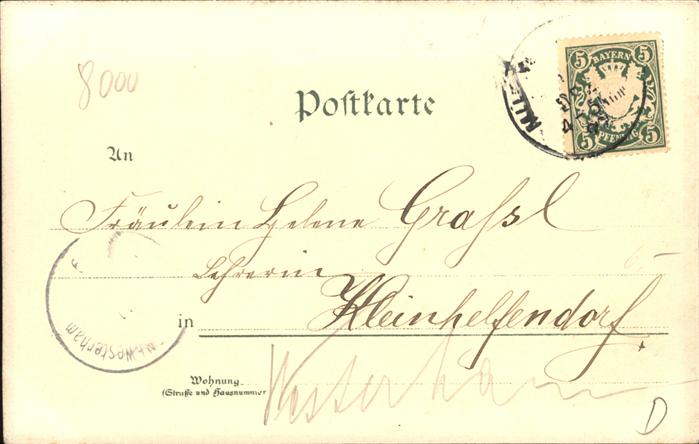 8000
5 BAYERN 5
5 PFENNIG 5
MÜN
Postkarte
An
Fräulein Helene Grassl
Lehrerin
in Kleinhelfendorf
Westerham
Westerham
Wohnung
(Straße und Hausnummer
D